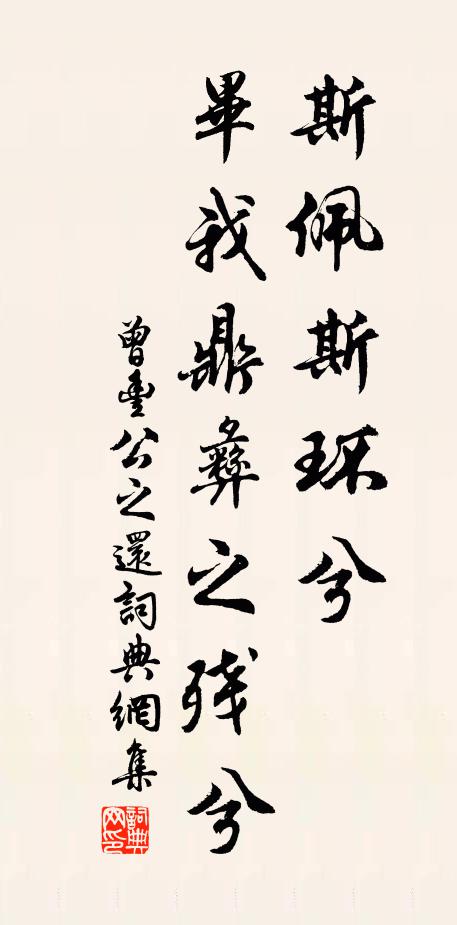 斯佩斯环兮
畢我鼎彝之残兮
曾豊公之還詞典網集
詞典网印